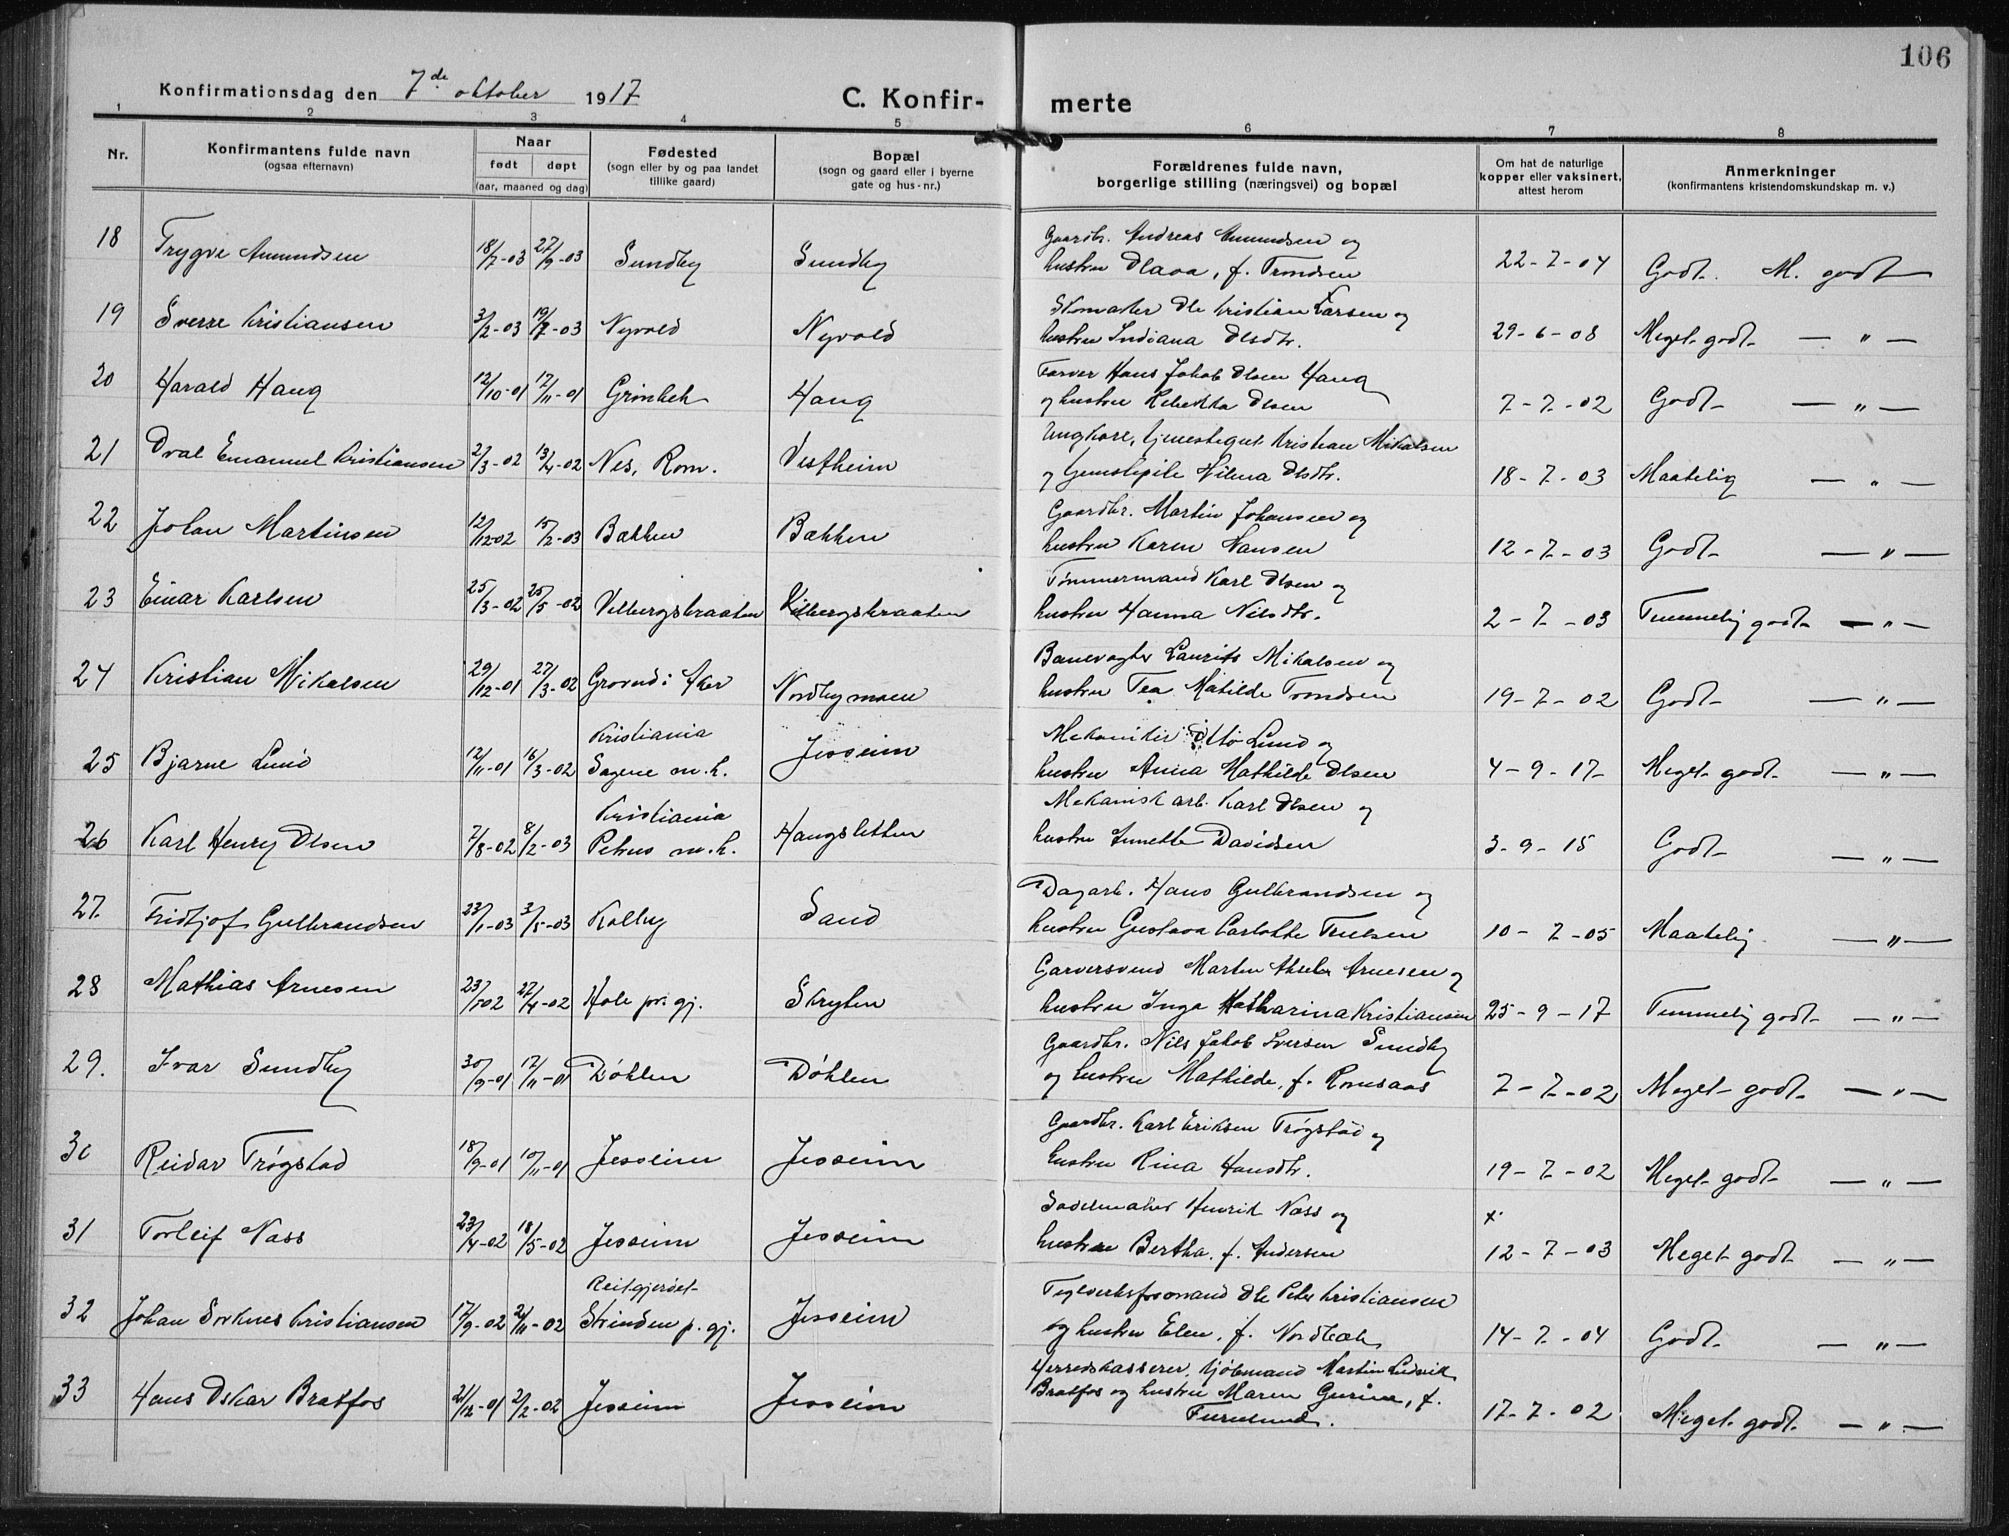 106
Konfirmationsdag den 7de oktober 1917
C. Konfir- merte
1 2 3 4 5 6 7 8
Nr.
Konfirmantens fulde navn
(ogsaa efternavn)
Naar
født døpt
(aar, maaned og dag)
Fødested
(sogn eller by og paa landet
tillike gaard)
Bopæl
(sogn og gaard eller i byerne
gate og hus-nr.)
Forældrenes fulde navn,
borgerlige stilling (næringsvei) og bopæl
Om hat de naturlige
kopper eller vaksinert,
attest herom
Anmerkninger
(konfirmantens kristendomskundskap m. v.)
Gaardbr. Andreas Amundsen og
18 Trygve Amundsen 18/7-03 27/9-03 Sundby Sundby hustru Olava, f. Trondsen 22-7-04 Godt. M. godt
Skomaker Ole Kristian Larsen og
19 Sverre Kristiansen 3/2-03 19/7-03 Nyvold Nyvold hustru Indiana Olsdtr. 29-6-08 Meget godt — " —
Farver Hans Jakob Olsen Haug
20 Harald Haug 12/10-01 17/11-01 Grinbek Haug og hustru Rebekka Olsen 7-7-02 Godt — " —
Ungkarl, tjenestegut Kristian Mikalsen
21 Oval Emanuel Kristiansen 2/3-02 13/4-02 Nes, Rom. Vestheim og tjenestepike Hilma Olsdtr. 18-7-03 Maatelig — " —
Gaardbr. Martin Johansen og
22 Johan Martinsen 12/12-02 15/2-03 Bakken Bakken hustru Karen Hansen 12-7-03 Godt — " —
Tømmermand Karl Olsen og
23 Einar Karlsen 25/3-02 25/5-02 Velbergsbraaten Kilbergsbraaten hustru Hanna Nilsdtr. 2-7-03 Temmelig godt — " —
Banevogter Laurits Mikalsen og
24 Kristian Mikalsen 29/12-01 27/3-02 Grorud i Aker Nordbymoen hustru Tea Matilde Trondsen 19-7-02 Godt — " —
Kristiania Mekaniker Otto Lund og
25 Bjarne Lund 12/11-01 16/3-02 Sagene m.h. Jesseim hustru Anna Mathilde Olsen 4-9-17 Meget godt — " —
Kristiania Mekanisk arb. Karl Olsen og
26 Karl Henry Olsen 7/8-02 8/2-03 Petrus m.h. Haugsletten hustru Annette Davidsen 3-9-15 Godt — " —
Dagarb. Hans Gulbrandsen og
27. Fridtjof Gulbrandsen 23/1-03 3/5-03 Kolby Sand hustru Gustava Carlotte Truesen 10-7-05 Maatelig — " —
Garversvend Martin Aksel Arnesen og
28 Mathias Arnesen 23/1-02 27/4-02 Hole pr.gj. Skryten hustru Inga Katharina Kristiansen 25-9-17 Temmelig godt — " —
Gaardbr. Nils Jakob Iversen Sundby
29. Ivar Sundby 30/9-01 17/11-01 Døhlen Døhlen og hustru Mathilde, f. Romsaas 7-7-02 Meget godt — " —
Gaardbr. Karl Eriksen Trøgstad og
30 Reidar Trøgstad 18/9-01 10/11-01 Jesseim Jesseim hustru Rina Hansdtr. 19-7-02 Meget godt — " —
Sadelmaker Henrik Næss og x
31 Torleif Næss 23/4-02 18/5-02 Jesseim Jesseim hustru Bertha, f. Andersen 12-7-03 Meget godt — " —
Reitgjerdet Teglverksformand Ole Peter Kristiansen
32 Johan Sorknes Kristiansen 17/9-02 2/11-02 Strinden p.gj. Jesseim og hustru Elen, f. Nordbak 14-7-04 Godt — " —
Herredskasserer, kjøbmand Martin Ludvik
33 Hans Oskar Bratfos 21/12-01 2/2-02 Jesseim Jesseim Bratfos og hustru Maren Gurine, f.
Furusund. 17-7-02 Meget godt — " —